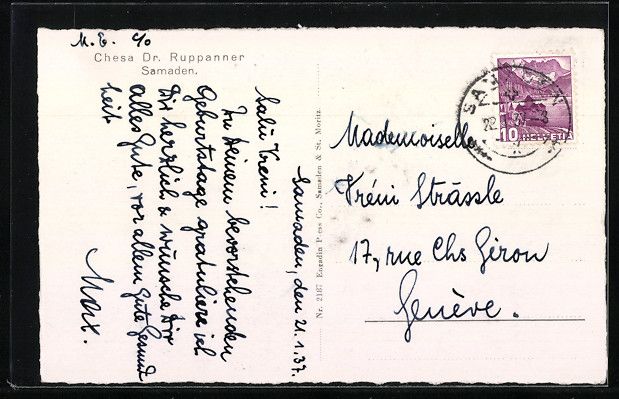 M. E. c/o
Chesa Dr. Ruppanner
Samaden.
Samaden, den 21.1.37.
Salü Vreni!
Zu Deinem bevorstehenden
Geburtstage gratuliere ich
Dir herzlich & wünsche Dir
alles Gute, vor allem gute Gesund
heit
Max.
Nr. 2187 Engadin Press Co., Samaden & St. Moritz
10 HELVETIA
Mademoiselle
Vréni Strässle
17, rue Chs Giron
Genève.